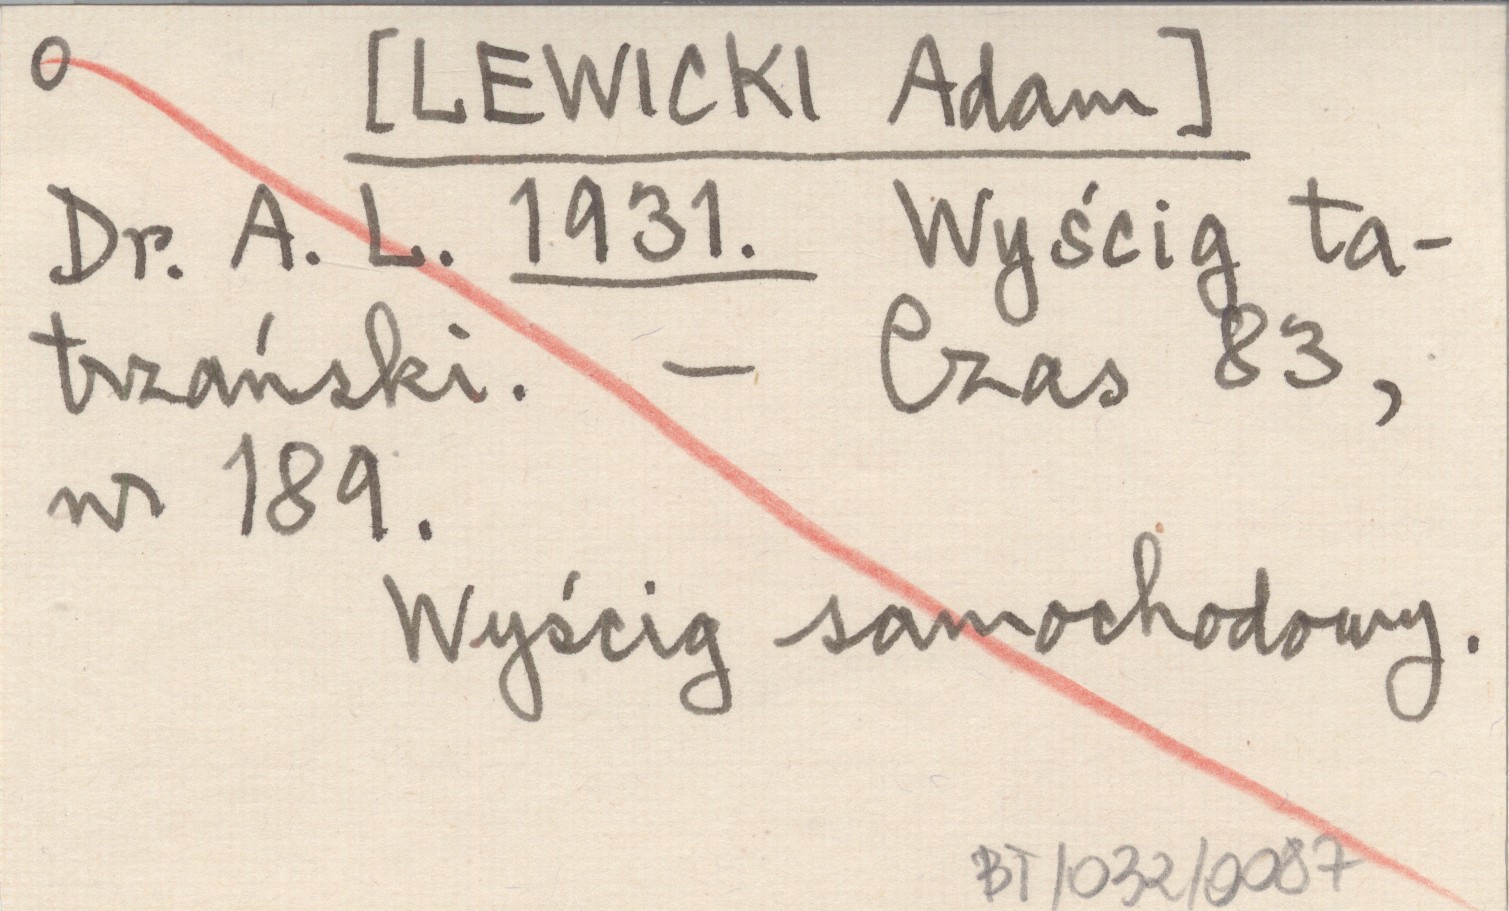 O [LEWICKI Adam]
Dr. A. L. 1931. Wyścig ta-
trzański. – Czas 83,
nr 189.
Wyścig samochodowy.
BT/032/0087